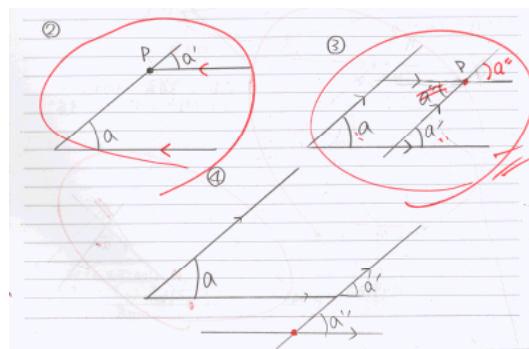 ②
P
a'
a
③
P
a''
a
a'
④
a
a'
a''